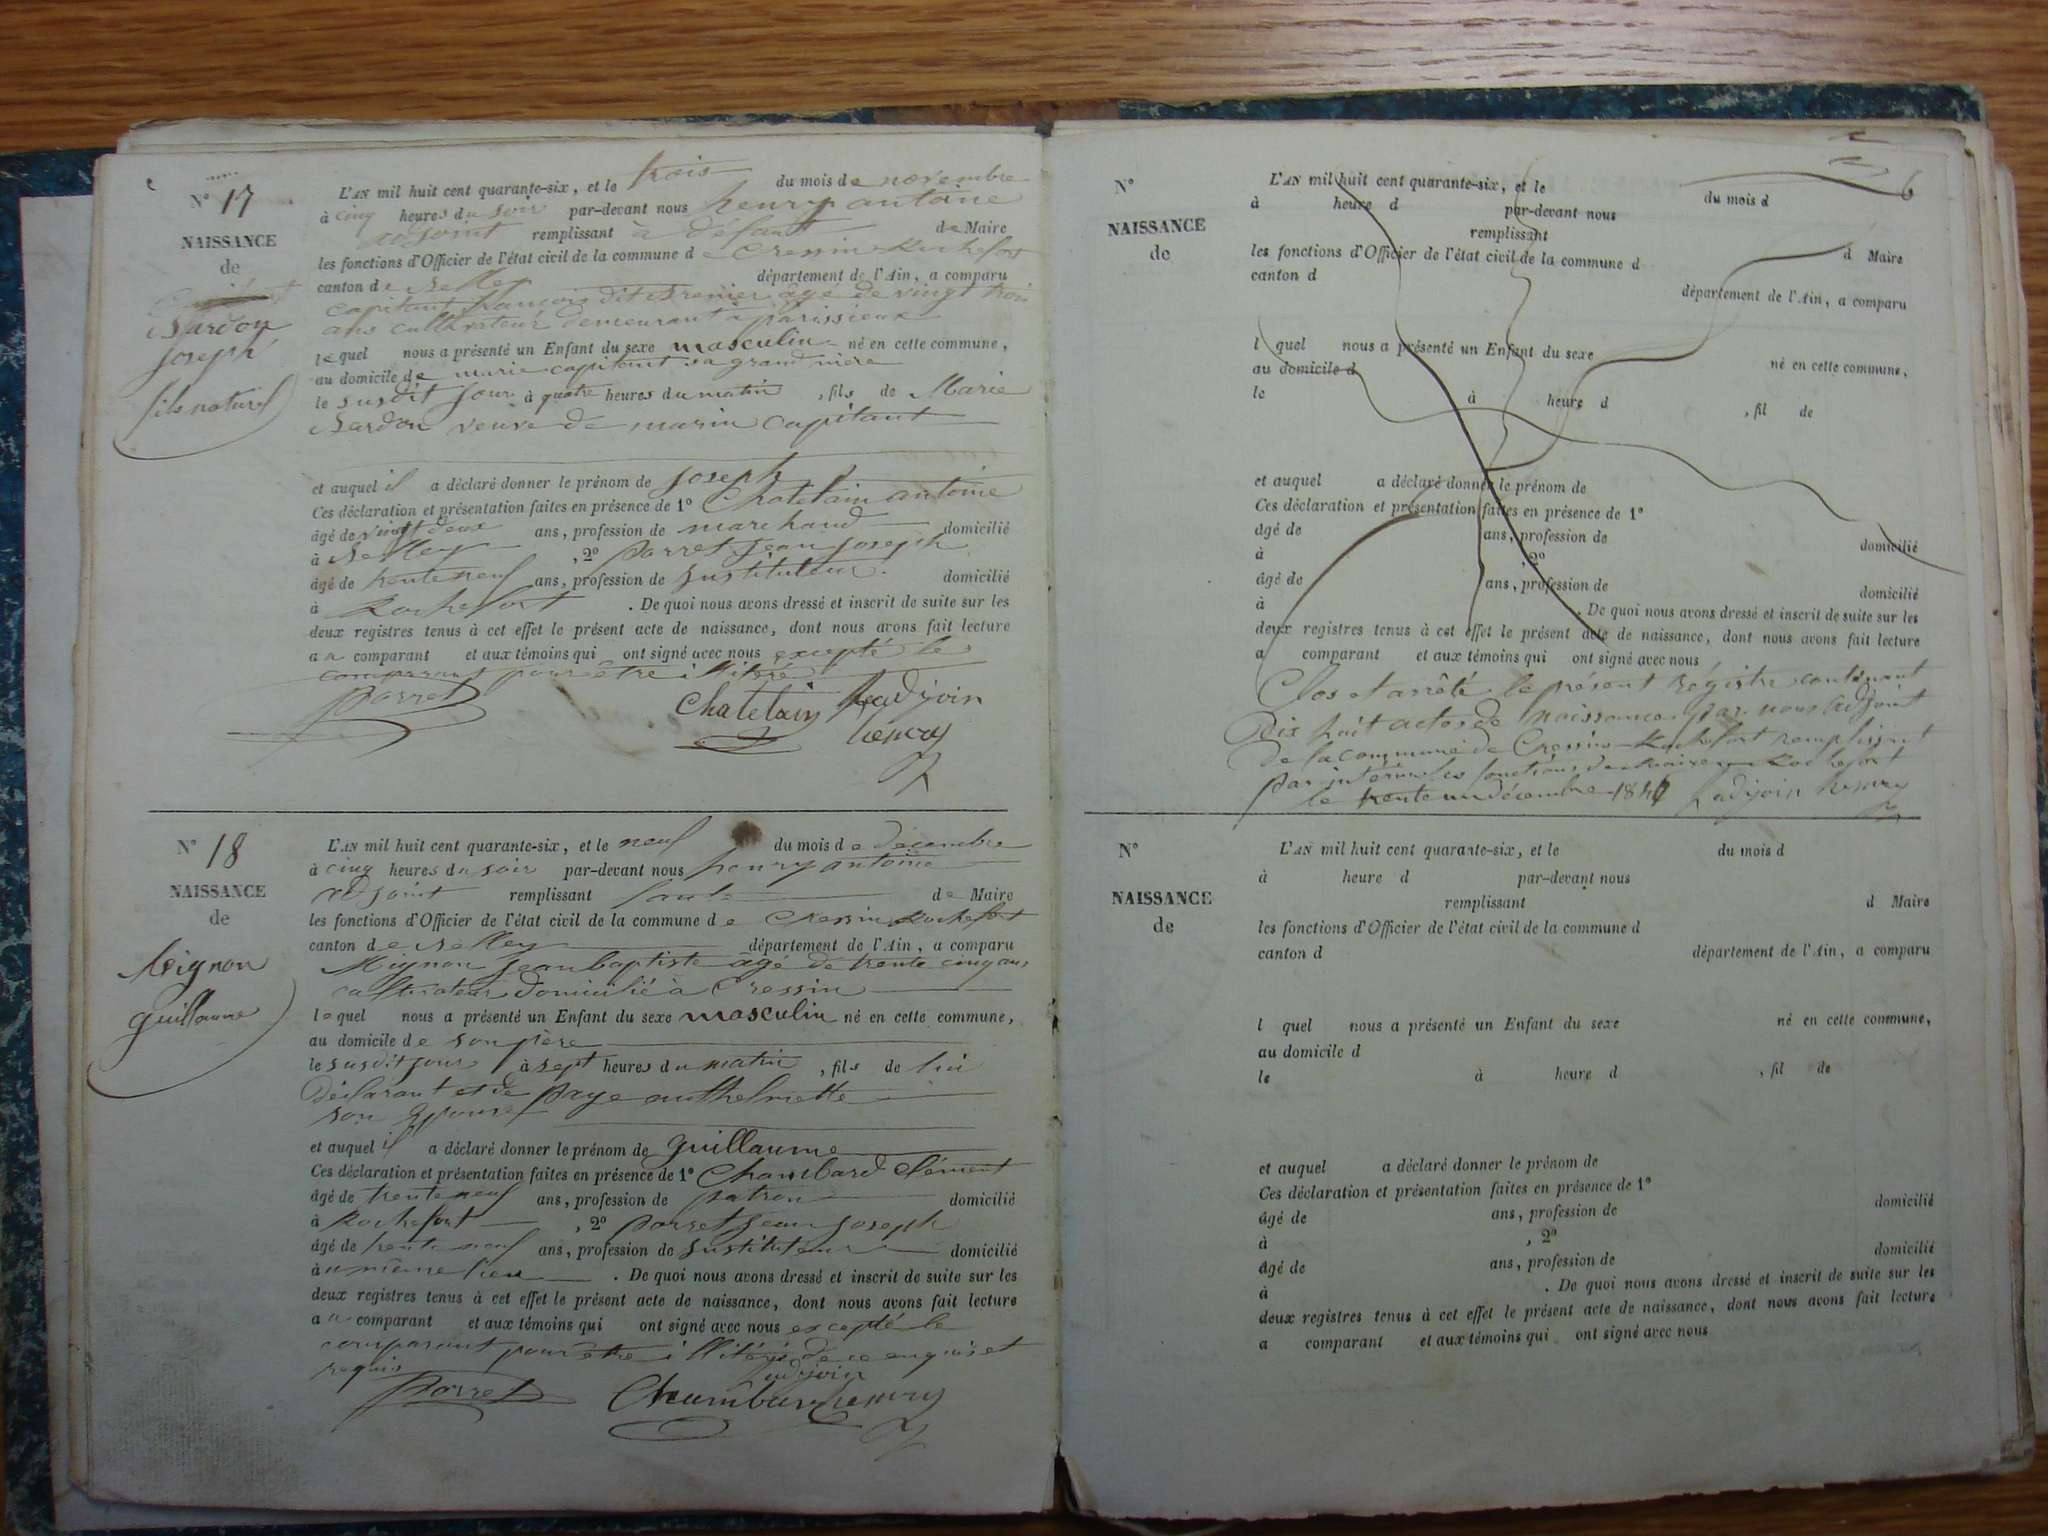 N° 17
NAISSANCE
de
Bardon
Joseph
fils naturel
L'AN mil huit cent quarante-six, et le trois du mois de novembre
à cinq heures du soir par-devant nous henry antoine
adjoint remplissant à défaut de Maire
les fonctions d'Officier de l'état civil de la commune de Cressin Rochefort
canton de Belley département de l'Ain, a comparu
capitant françois dit Grenier âgé de vingt trois
ans cultivateur demeurant à parissieux
lequel nous a présenté un Enfant du sexe masculin né en cette commune,
au domicile de marie capitant sa grand mère
le susdit jour à quatre heures du matin, fils de Marie
Bardon veuve de marin capitant
et auquel il a déclaré donner le prénom de Joseph
Ces déclaration et présentation faites en présence de 1° Chatelain antoine
âgé de vingt deux ans, profession de marchand domicilié
à Belley, 2° porret Jean Joseph
âgé de trente neuf ans, profession de Instituteur domicilié
à Rochefort. De quoi nous avons dressé et inscrit de suite sur les
deux registres tenus à cet effet le présent acte de naissance, dont nous avons fait lecture
au comparant et aux témoins qui ont signé avec nous excepté le
comparant pour être illitéré
porret Chatelain Ladijoin
henry
N° 18
NAISSANCE
de
Mignon
guillaume
L'AN mil huit cent quarante-six, et le neuf du mois de décembre
à cinq heures du soir par-devant nous henry antoine
adjoint remplissant faute de Maire
les fonctions d'Officier de l'état civil de la commune de Cressin Rochefort
canton de Belley département de l'Ain, a comparu
Mignon Jean baptiste âgé de trente cinq ans
cultivateur domicilié à Cressin
lequel nous a présenté un Enfant du sexe masculin né en cette commune,
au domicile de son père
le susdit jour à sept heures du matin, fils de lui
Déclarant et de paye anthelmette
son Epouse
et auquel il a déclaré donner le prénom de guillaume
Ces déclaration et présentation faites en présence de 1° Chambard Clément
âgé de trente neuf ans, profession de patron domicilié
à Rochefort, 2° porret Jean Joseph
âgé de trente neuf ans, profession de Instituteur domicilié
au même lieu. De quoi nous avons dressé et inscrit de suite sur les
deux registres tenus à cet effet le présent acte de naissance, dont nous avons fait lecture
au comparant et aux témoins qui ont signé avec nous excepté le
comparant pour être illitéré de ce enquis et
requis
Ladijoin
porret Chambard henry
6
N°
NAISSANCE
de
L'AN mil huit cent quarante-six, et le du mois d
à heure d par-devant nous
remplissant d Maire
les fonctions d'Officier de l'état civil de la commune d
canton d département de l'Ain, a comparu
l quel nous a présenté un Enfant du sexe né en cette commune,
au domicile d
le à heure d, fil de
et auquel a déclaré donner le prénom de
Ces déclaration et présentation faites en présence de 1°
âgé de ans, profession de domicilié
à, 2°
âgé de ans, profession de domicilié
à. De quoi nous avons dressé et inscrit de suite sur les
deux registres tenus à cet effet le présent acte de naissance, dont nous avons fait lecture
a comparant et aux témoins qui ont signé avec nous
Clos et arrêté le présent régistre contenant
Dix huit actes de naissances par nous Adjoint
de la commune de Cressin Rochefort remplissant
par intérim les fonctions de maire Rochefort
le trente un décembre 1846 Ladijoin henry
N°
NAISSANCE
de
L'AN mil huit cent quarante-six, et le du mois d
à heure d par-devant nous
remplissant d Maire
les fonctions d'Officier de l'état civil de la commune d
canton d département de l'Ain, a comparu
l quel nous a présenté un Enfant du sexe né en cette commune,
au domicile d
le à heure d, fil de
et auquel a déclaré donner le prénom de
Ces déclaration et présentation faites en présence de 1°
âgé de ans, profession de domicilié
à, 2°
âgé de ans, profession de domicilié
à. De quoi nous avons dressé et inscrit de suite sur les
deux registres tenus à cet effet le présent acte de naissance, dont nous avons fait lecture
a comparant et aux témoins qui ont signé avec nous